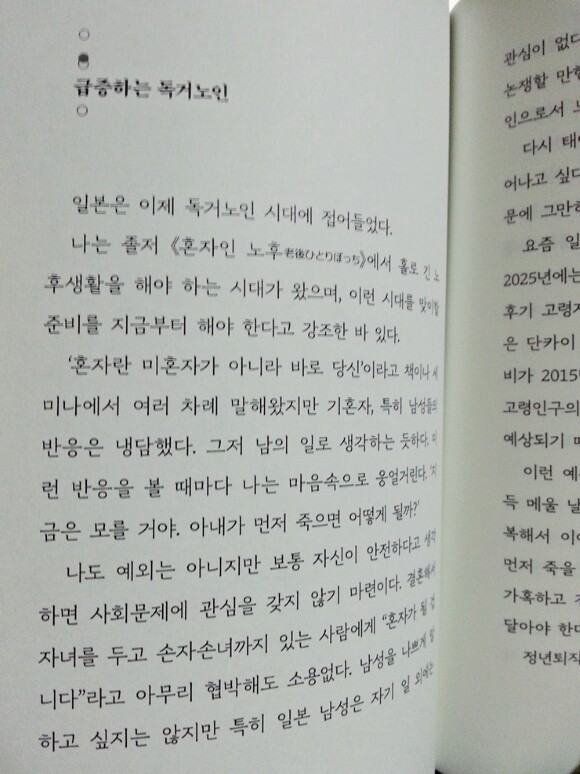 급증하는 독거노인
일본은 이제 독거노인 시대에 접어들었다.
나는 졸저 《혼자인 노후老後ひとりぼっち》에서 홀로 긴 노
후생활을 해야 하는 시대가 왔으며, 이런 시대를 맞이할
준비를 지금부터 해야 한다고 강조한 바 있다.
‘혼자란 미혼자가 아니라 바로 당신’이라고 책이나 세
미나에서 여러 차례 말해왔지만 기혼자, 특히 남성들의
반응은 냉담했다. 그저 남의 일로 생각하는 듯하다. 이
런 반응을 볼 때마다 나는 마음속으로 웅얼거린다. ‘지
금은 모를 거야. 아내가 먼저 죽으면 어떻게 될까?’
나도 예외는 아니지만 보통 자신이 안전하다고 생각
하면 사회문제에 관심을 갖지 않기 마련이다. 결혼해서
자녀를 두고 손자손녀까지 있는 사람에게 “혼자가 될 겁
니다”라고 아무리 협박해도 소용없다. 남성을 나쁘게 말
하고 싶지는 않지만 특히 일본 남성은 자기 일 외에는
관심이 없다
논쟁할 만한
인으로서
다시 태어
어나고 싶다
문에 그만
요즘 일
2025년에는
후기 고령
은 단카이
비가 2015
고령인구의
예상되기
이런 예
득 메울 날
복해서 이
먼저 죽을
가혹하고
달아야 한다
정년퇴직